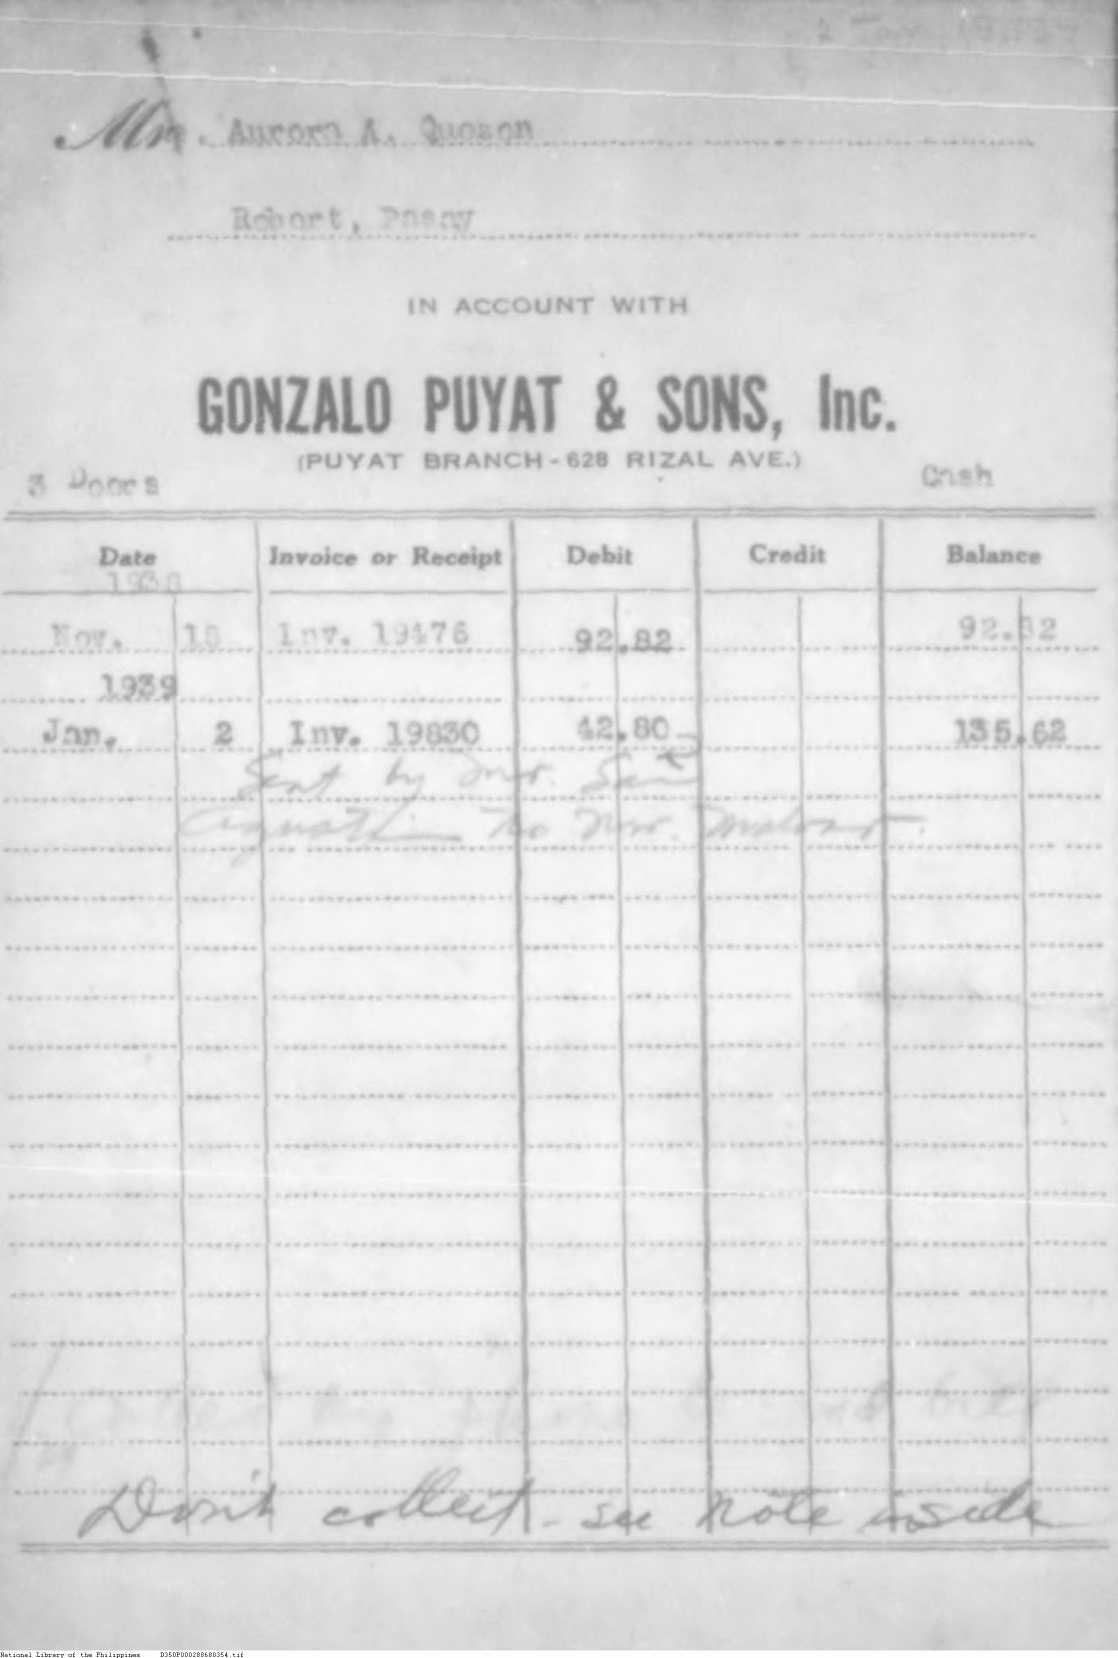 2 Jan
Mrs. Aurora A. Quezon
Robert, Pasay
IN ACCOUNT WITH
GONZALO PUYAT & SONS, Inc.
(PUYAT BRANCH-628 RIZAL AVE.)
3 Doors Cash
Date Invoice or Receipt Debit Credit Balance
1938
Nov. 18 Inv. 19476 92.82 92.82
1939
Jan. 2 Inv. 19830 42.80 135.62
Sent by Mr. San
Agustin to Mr.
Don't collect - see note inside
National Library of the Philippines D350P000288680354.tif